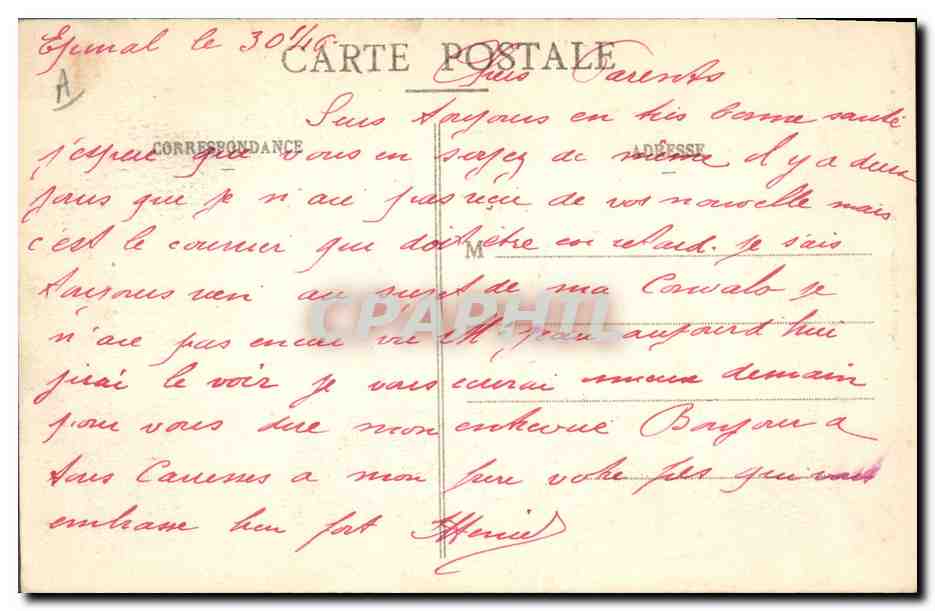 Epinal le 30
CARTE POSTALE
A
Chers Parents
Suis toujours en tres bonne santé
CORRESPONDANCE
ADRESSE
j'espere que vous en soyez de meme il y a deux
jours que je n'aie pas reçu de vos nouvelle mais
c'est le courrier qui doit être en retard. je sais
M
toujours rien au sujet de ma Convalo je
CPAPHIL
n'aie pas encore vu M. Jean aujourd hui
j'irai le voir je vous ecrirai mieux demain
pour vous dire mon entrevue Bonjour a
tous Caresses a mon frere votre fils qui vous
embrasse bien fort Henri